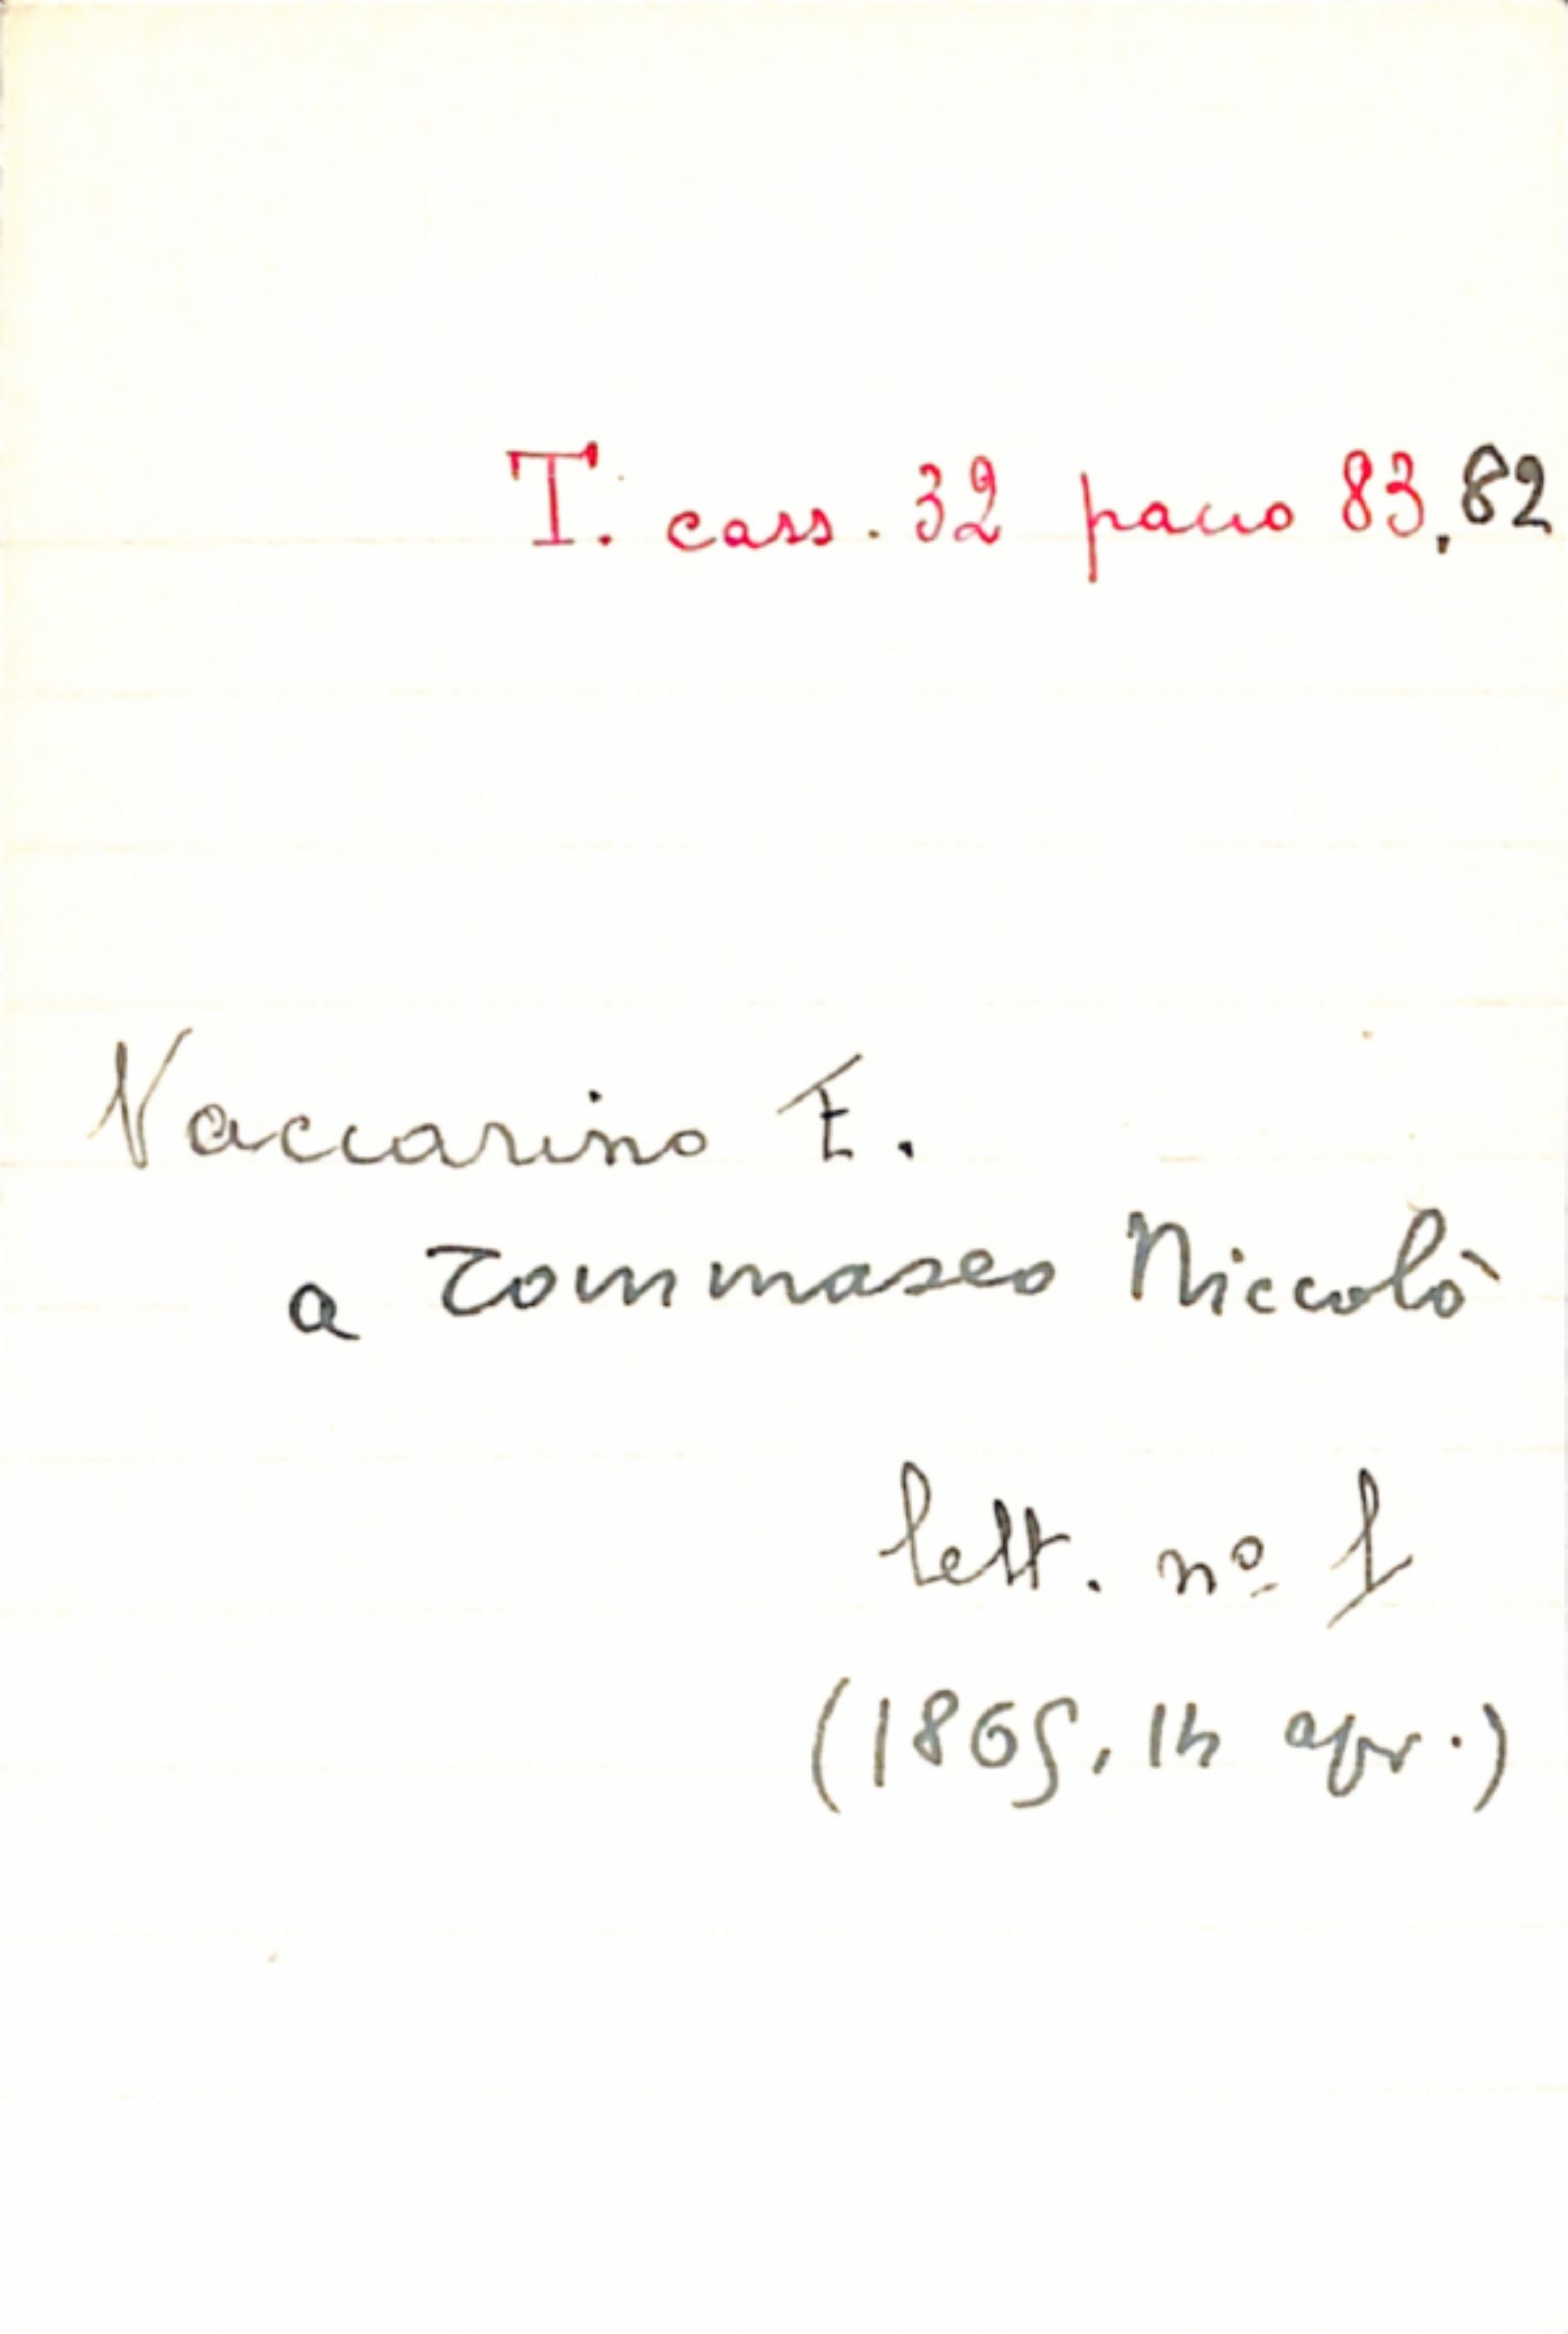 T. cass. 32 pacco 83,82
Vaccarino E.
a Tommaseo Niccolò
lett. nº 1
(1865, 14 apr.)